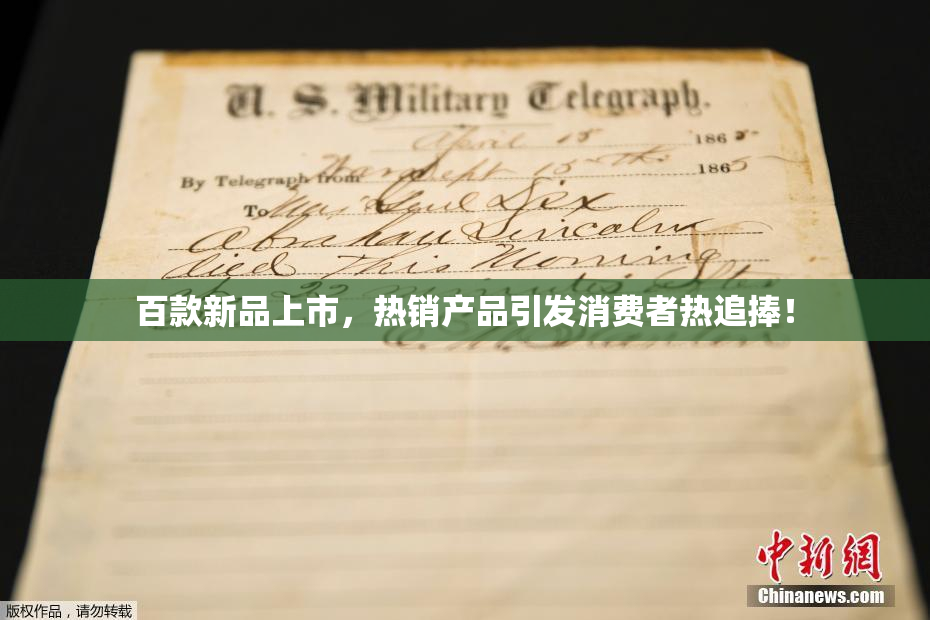 U. S. Military Telegraph.
April 15 1865
By Telegraph from War Dept 15th 1865
To Maj Genl Dix
Abraham Lincoln
died This Morning
at 22 minutes after
百款新品上市，热销产品引发消费者热追捧！
E. M. Stanton
中新网
Chinanews.com
版权作品，请勿转载